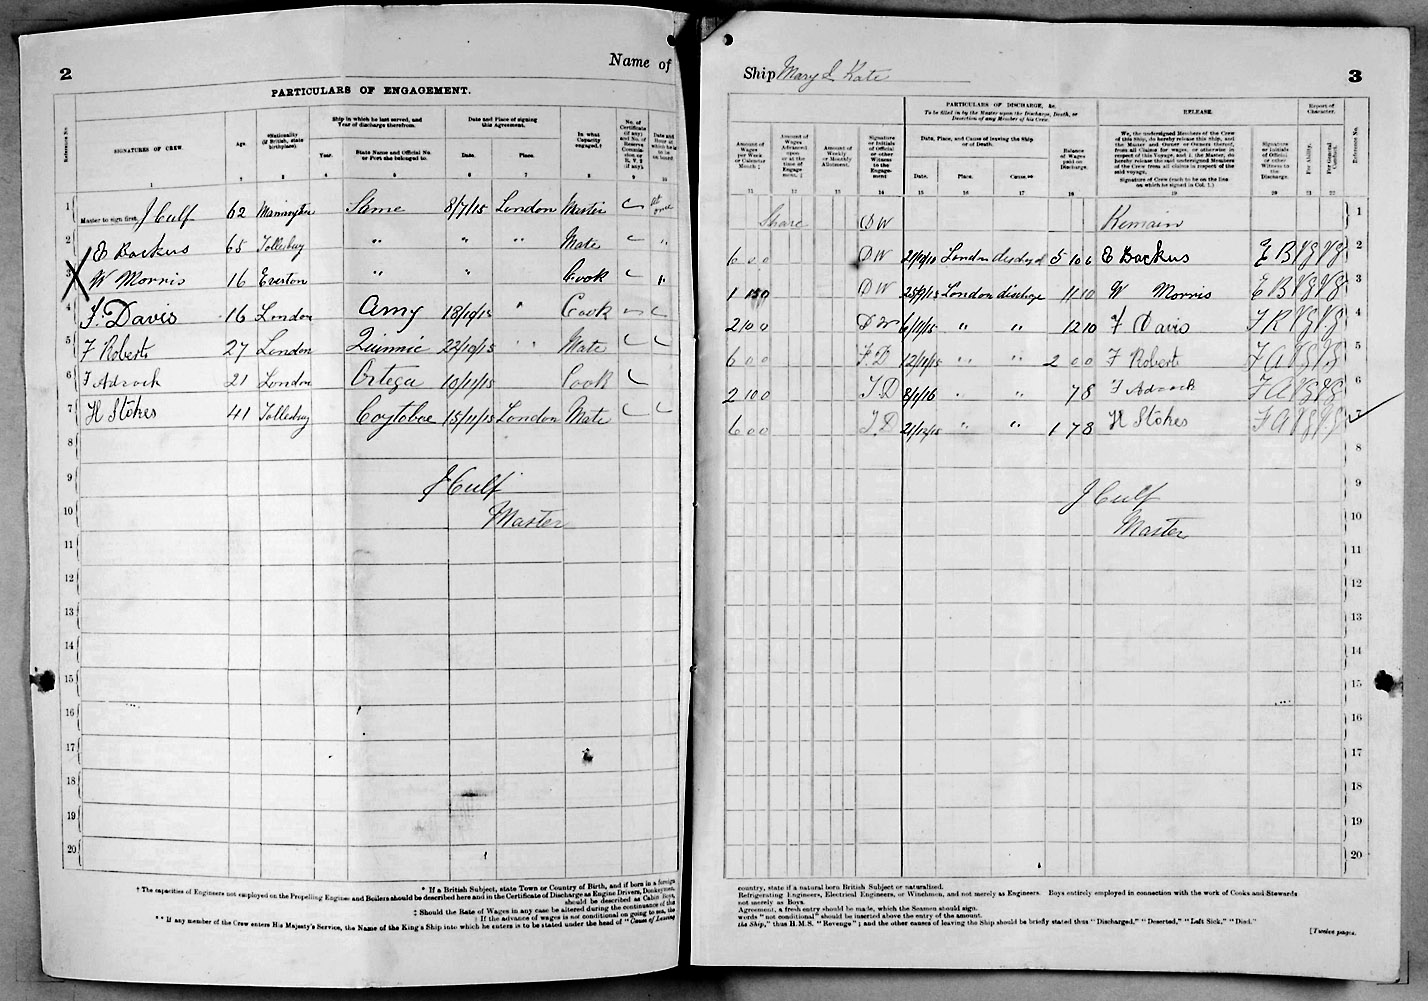 2
Name of
PARTICULARS OF ENGAGEMENT.
Reference No.
SIGNATURES OF CREW.
Age.
*Nationality (if British, state birthplace).
Ship in which he last served, and Year of discharge therefrom.
Year.
State Name and Official No. or Port she belonged to.
Date and Place of signing this Agreement.
Date.
Place.
In what Capacity engaged.†
No. of Certificate (if any) and No. of Reserve Commission or R.V.2 (if any).
Date and Hour at which he is to be on board.
1 2 3 4 5 6 7 8 9 10
1 Master to sign first. J Culf 62 Same 8/7/15 London Master at once
2 E Backus 65 Tollesbury " " " Mate "
3 W Morris 16 Everton " " Cook "
4 F. Davis 16 London Amy 18/10/15 " Cook
5 F Roberts 27 London 22/10/15 " Mate
6 F Adcock 21 London Ortega 10/11/15 Cook
7 H Stokes 41 Tollesbury 15/11/15 London Mate
8
9 J Culf
10 Master
11
12
13
14
15
16
17
18
19
20
* If a British Subject, state Town or Country of Birth, and if born in a foreign
† The capacities of Engineers not employed on the Propelling Engines and Boilers should be described here and in the Certificate of Discharge as Engine Drivers, Donkeymen,
should be described as Cabin Boys,
‡ Should the Rate of Wages in any case be altered during the continuance of the
‖ If the advance of wages is not conditional on going to sea, the
** If any member of the Crew enters His Majesty's Service, the Name of the King's Ship into which he enters is to be stated under the head of "Cause of Leaving
Ship Mary & Kate
3
PARTICULARS OF DISCHARGE, &c.
To be filled in by the Master upon the Discharge, Death, or Desertion of any Member of his Crew.
RELEASE.
Report of Character.
Amount of Wages per Week or Calendar Month ‡
Amount of Wages Advanced upon or at the time of Engagement. ‡
Amount of Weekly or Monthly Allotment.
Signature or Initials of Official or other Witness to the Engagement
Date, Place, and Cause of leaving the Ship or of Death.
Date.
Place.
Cause.**
Balance of Wages paid on Discharge.
We, the undersigned Members of the Crew of this Ship, do hereby release this ship, and the Master and Owner or Owners thereof, from all Claims for wages, or otherwise in respect of this Voyage, and I, the Master, do hereby release the said undersigned Members of the Crew from all claims in respect of the said voyage.
Signature of Crew (each to be on the line on which he signed in Col. 1.)
Signature or Initials of Official or other Witness to the Discharge.
For Ability.
For General Conduct.
Reference No.
11 12 13 14 15 16 17 18 19 20 21 22
Share D W Remain 1
6 0 0 D W London 5 10 6 E Backus E B VG VG 2
1 15 0 D W 25/9/15 London discharge 11 10 W Morris E B VG VG 3
2 10 0 D W 6/11/15 " " 12 10 F Davis F R VG VG 4
6 0 0 F. D 12/11/15 " " 2 0 0 F Roberts F A VG VG 5
2 10 0 F. D 8/1/16 " " 7 8 F Adcock F A VG VG 6
6 0 0 F. D 21/12/15 " " 1 7 8 H Stokes F A VG VG 7
8
J Culf 9
Master 10
11
12
13
14
15
16
17
18
19
20
country, state if a natural born British Subject or naturalized.
Refrigerating Engineers, Electrical Engineers, or Winchmen, and not merely as Engineers. Boys entirely employed in connection with the work of Cooks and Stewards
not merely as Boys.
Agreement, a fresh entry should be made, which the Seamen should sign.
words "not conditional" should be inserted above the entry of the amount.
the Ship," thus H.M.S. "Revenge"; and the other causes of leaving the Ship should be briefly stated thus "Discharged," "Deserted," "Left Sick," "Died."
[Twelve pages.